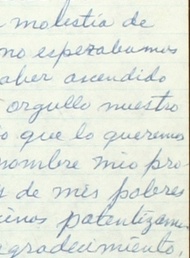 molestia de
no esperabamos
aber ascendido
orgullo nuestro
o que lo queremos
nombre mio pro-
s de mis pobres
cinos patentizamo
gradecimiento,